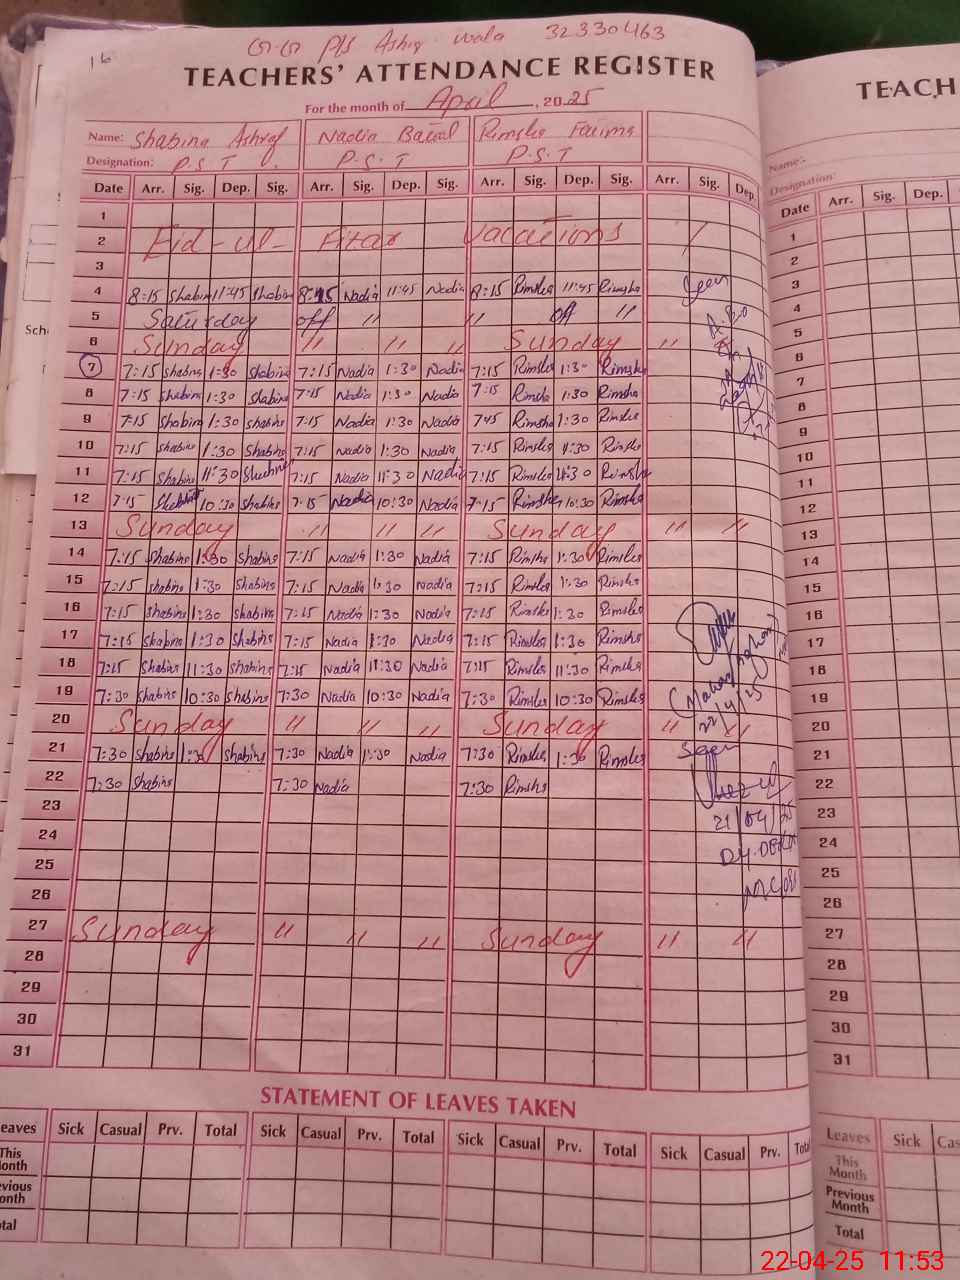 16
G.G P/S Ashiq wala 32330463
TEACHERS' ATTENDANCE REGISTER
For the month of April, 2025
Name: Shabina Ashraf Nadia Batool Rimsha Faiims
Designation: P.S.T. P.S.T P.S.T
Date Arr. Sig. Dep. Sig. Arr. Sig. Dep. Sig. Arr. Sig. Dep. Sig. Arr. Sig. Dep.
1
2 Eid-ul- Fitar Vacations
3
4 8:15 Shabina 11:45 Shabina 8:15 Nadia 11:45 Nadia 8:15 Rimsha 11:45 Rimsha Seen
5 Saturday off " " off "
6 Sunday " " " Sunday "
7 7:15 Shabina 1:30 Shabina 7:15 Nadia 1:30 Nadia 7:15 Rimsha 1:30 Rimsha
8 7:15 Shabina 1:30 Shabina 7:15 Nadia 1:30 Nadia 7:15 Rimsha 1:30 Rimsha
9 7:15 Shabina 1:30 Shabina 7:15 Nadia 1:30 Nadia 7:15 Rimsha 1:30 Rimsha
10 7:15 Shabina 1:30 Shabina 7:15 Nadia 1:30 Nadia 7:15 Rimsha 1:30 Rimsha
11 7:15 Shabina 11:30 Shabina 7:15 Nadia 11:30 Nadia 7:15 Rimsha 11:30 Rimsha
12 7:15 Shabina 10:30 Shabina 7:15 Nadia 10:30 Nadia 7:15 Rimsha 10:30 Rimsha
13 Sunday " " " Sunday " "
14 7:15 Shabina 1:30 Shabina 7:15 Nadia 1:30 Nadia 7:15 Rimsha 1:30 Rimsha
15 7:15 Shabina 1:30 Shabina 7:15 Nadia 1:30 Nadia 7:15 Rimsha 1:30 Rimsha
16 7:15 Shabina 1:30 Shabina 7:15 Nadia 1:30 Nadia 7:15 Rimsha 1:30 Rimsha
17 7:15 Shabina 1:30 Shabina 7:15 Nadia 1:30 Nadia 7:15 Rimsha 1:30 Rimsha
18 7:15 Shabina 11:30 Shabina 7:15 Nadia 11:30 Nadia 7:15 Rimsha 11:30 Rimsha
19 7:30 Shabina 10:30 Shabina 7:30 Nadia 10:30 Nadia 7:30 Rimsha 10:30 Rimsha
20 Sunday " " " Sunday " "
21 7:30 Shabina 1:30 Shabina 7:30 Nadia 1:30 Nadia 7:30 Rimsha 1:30 Rimsha Seen
22 7:30 Shabina 7:30 Nadia 7:30 Rimsha
23 21/04/25
24
25
26
27 Sunday " " " Sunday " "
28
29
30
31
STATEMENT OF LEAVES TAKEN
eaves Sick Casual Prv. Total Sick Casual Prv. Total Sick Casual Prv. Total Sick Casual Prv. Tota
This
onth
evious
onth
otal
TEACH
Name:
Designation:
Date Arr. Sig. Dep.
1
2
3
4
5
6
7
8
9
10
11
12
13
14
15
16
17
18
19
20
21
22
23
24
25
26
27
28
29
30
31
Leaves Sick Cas
This
Month
Previous
Month
Total
22-04-25 11:53